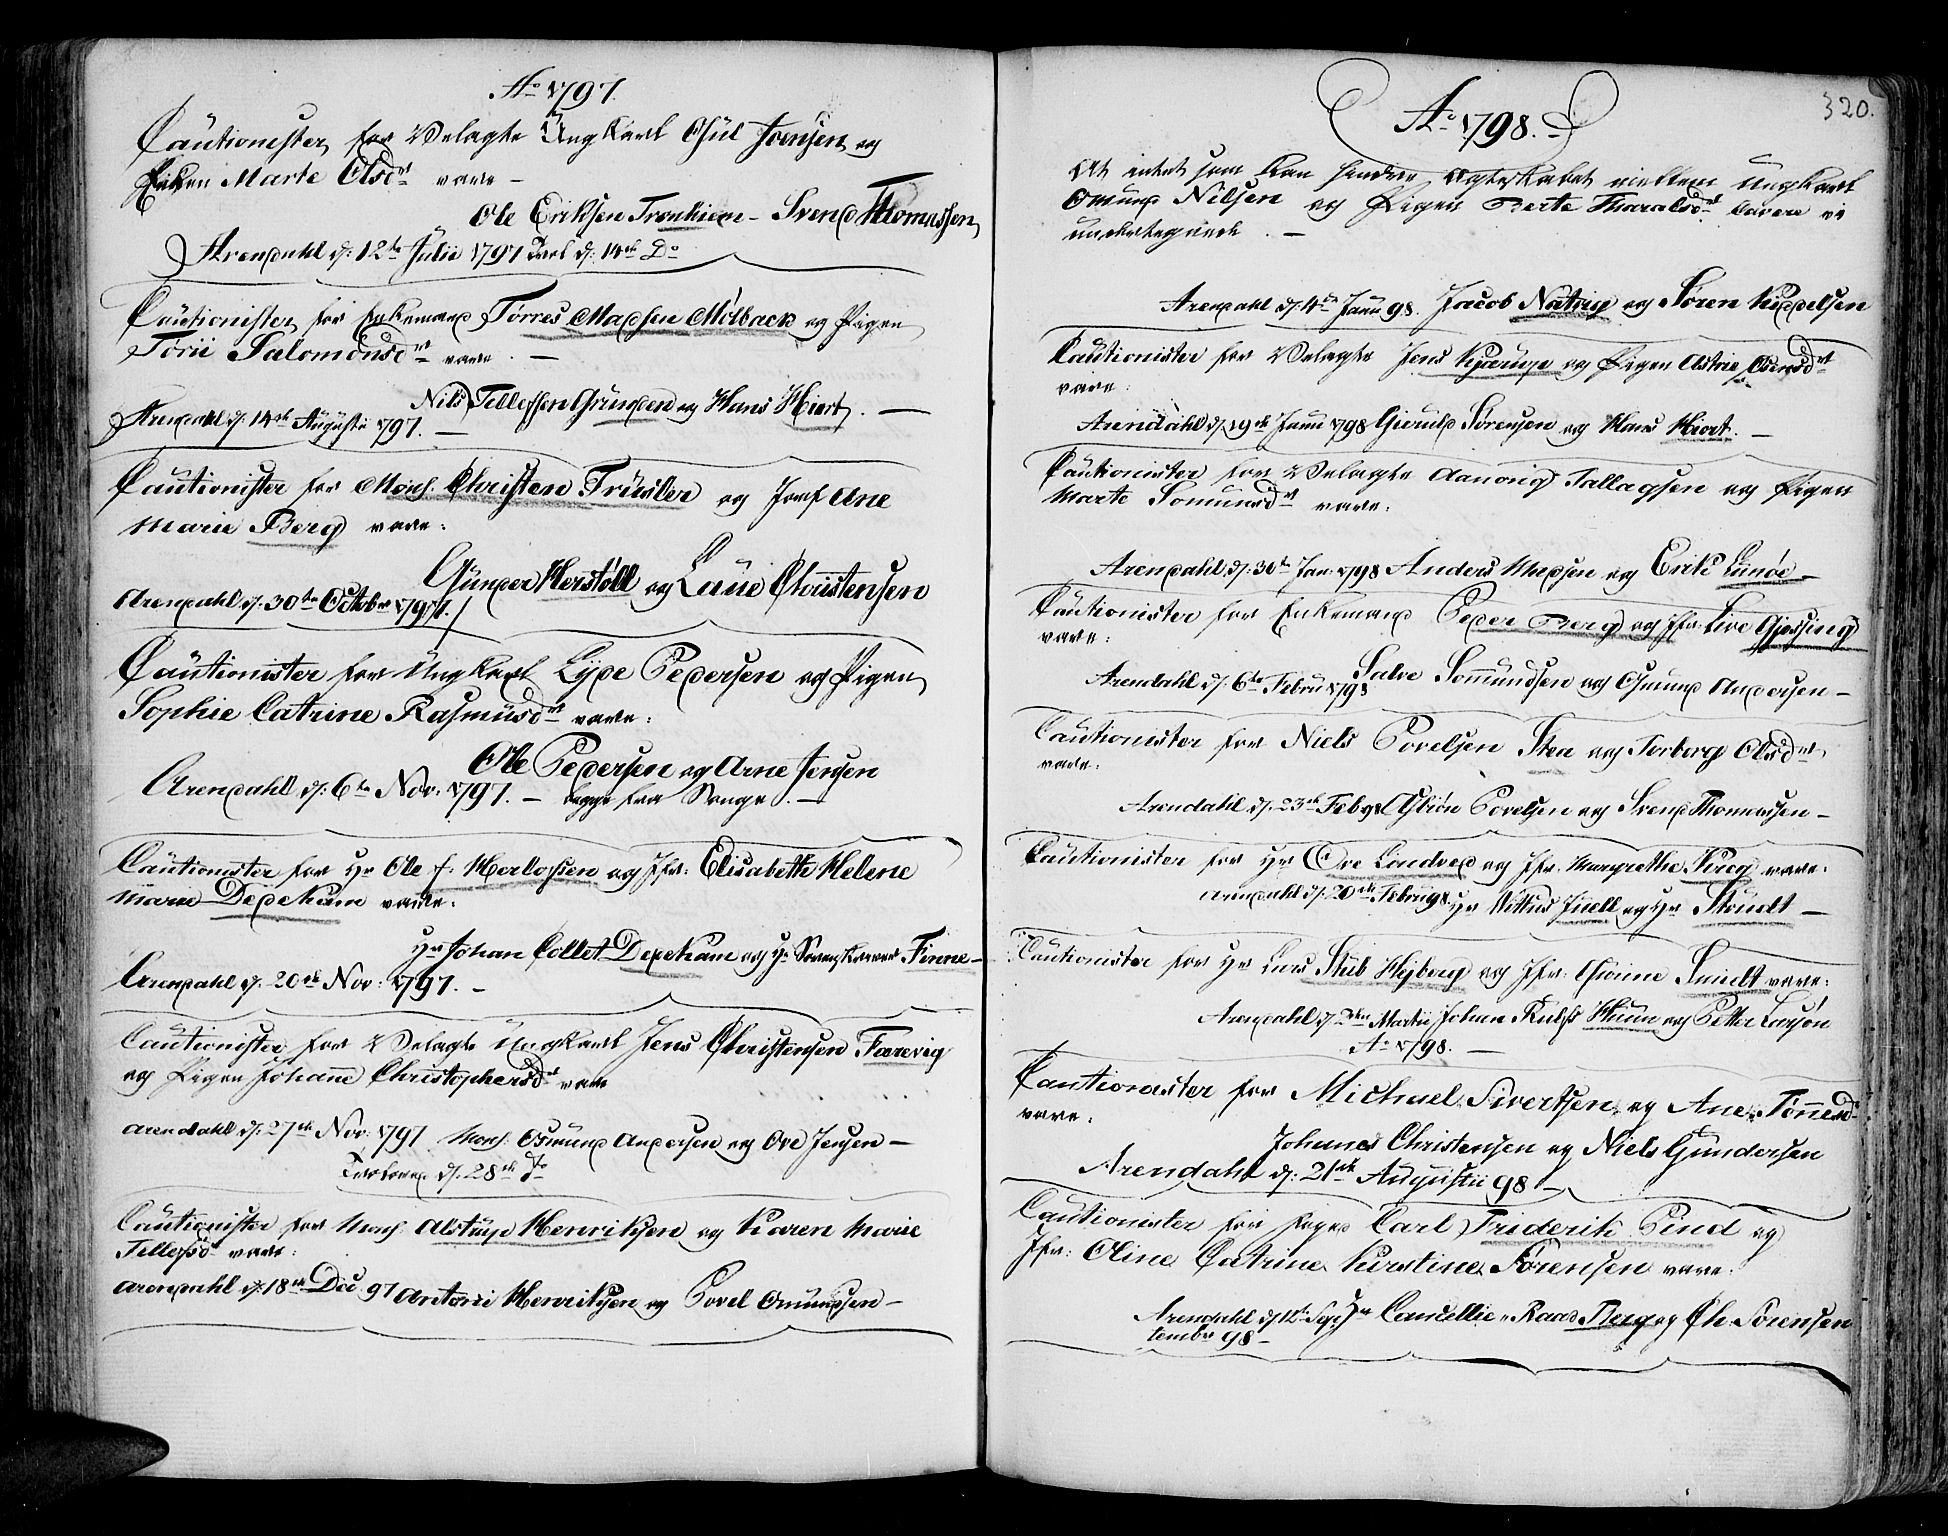 Ao 1797.
Cautionister for Velagte Ung Karl Giul Joensen og
Pigen Marte Olsdt vare –
Ole Eriksen Tronhiem – Svend Thomassen
Arendahl d: 12te Julii 1797 Trol d: 14de Do
Cautionister for Enkemand Torres Madsen Mölback og Pigen
Torii Salomonsdt vare . –
Nils Tellefsen Grimden og Hans Hiort . –
Arendahl d: 14de Augusti 1797. –
Cautionister for Mons. Christen Trüsler og Jomf Ane
Marie Berg vare:
Günder Herstöll og Laue Christensen
Arendahl d: 30te Octobr 1797.
Cautionister for Ung Karl Lÿde Pedersen og Pigen
Sophie Catrine Rasmusdt vare:
Ole Pedersen og Arne Jensen
Arendahl d: 6te Nov: 1797. – begge fra Songe. –
Cautionister for Hr Ole f. Herlofsen og Jfr: Elisabeth Helene
Marie Dedekam vare:
Hr Johan Collet Dedekam og Hr Sorenskriver Finne –
Arendahl d: 20de Nov: 1797. –
Cautionister for Velagte Ungkarl Jens Christensen Farevig
og Pigen Johanne Christophersdt vare
Arendahl d: 27de Nov: 1797 Mons. Osmund Andersen og Ove Jensen –
Trolovet d: 28de Do
Cautionister for Mons. Alstrup Henriksen og Karen Marie
Tellefsdt vare:
Arendahl d: 18de Dec 97 Antoni Henriksen og Povel Omundsen –
320.
Ao 1798.
At intet som kan hindre Ægteskabet mellem Ungkarl
Omund Nilsen og Pigen Berte Haralsdt Cavere vi
undertegnede . –
Arendahl d: 4de Janu 98. Jacob Natvig og Sören Kiddelsen
Cautionister for Velagte Jens Kjærup og Pigen Astrie Osensdt
vare:
Arendahl d. 19de Janu 1798 Gieruld Sörensen og Hans Hiort. –
Cautionister for Velagte Aanorig Tallagsen og Pigen
Marte Somundsdt vare:
Arendahl d: 30te Jan: 1798 Anders Madsen og Erik Lunöe –
Cautionister for Enkemand Peder Berg og Jfr: Live Gjessing
vare:
Salve Sommundsen og Omund Andersen –
Arendahl d: 6te Febru 1798
Cautionister for Niels Povelsen Stea og Torborg Olsdt
vare:
Arendahl d. 23de Feb 98 Asbiön Povelsen og Svend Thomassen –
Cautionister for Hr Ove Lindved og Jfr. Margrethe Krog vare:
Arendahl d: 20de Febru 98. Hr Vittus Juell og Hr Stoudt –
Cautionister for Hr Lars Stub Hejberg og Jfr: Giörine Smidt vare:
Arendahl d. Martii Johan Rulfs Thun og Petter Larsön
Ao 1798. –
Cautionister for Michael Sivertsen og Ane Tönnesdt
vare:
Johannes Christensen og Niels Gundersen
Arendahl d: 21de Augustii 98 –
Cautionister for Carl Friderik Pind og
Jfr: Oline Catrine Kirstine Sörensen vare:
Arendahl d 12te Sep Hr Cancellie-Raad Berg og Ch. Sörensen
tembr 98 –